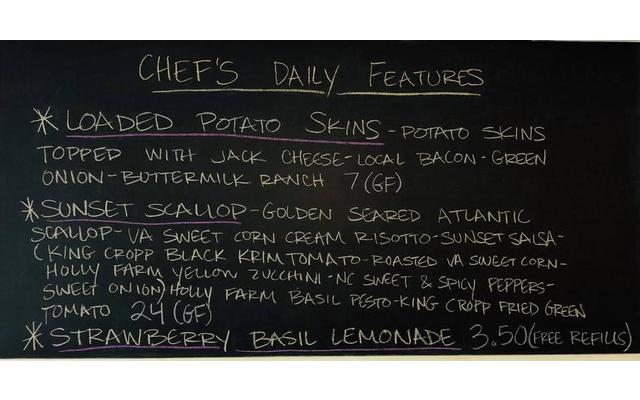 CHEF'S DAILY FEATURES
* LOADED POTATO SKINS - POTATO SKINS
TOPPED WITH JACK CHEESE - LOCAL BACON - GREEN
ONION - BUTTERMILK RANCH 7 (GF)
* SUNSET SCALLOP - GOLDEN SEARED ATLANTIC
SCALLOP - VA SWEET CORN CREAM RISOTTO - SUNSET SALSA -
(KING CROPP BLACK KRIM TOMATO - ROASTED VA SWEET CORN -
HOLLY FARM YELLOW ZUCCHINI - NC SWEET & SPICY PEPPERS -
SWEET ONION) HOLLY FARM BASIL PESTO - KING CROPP FRIED GREEN
TOMATO 24 (GF)
* STRAWBERRY BASIL LEMONADE 3.50 (FREE REFILLS)